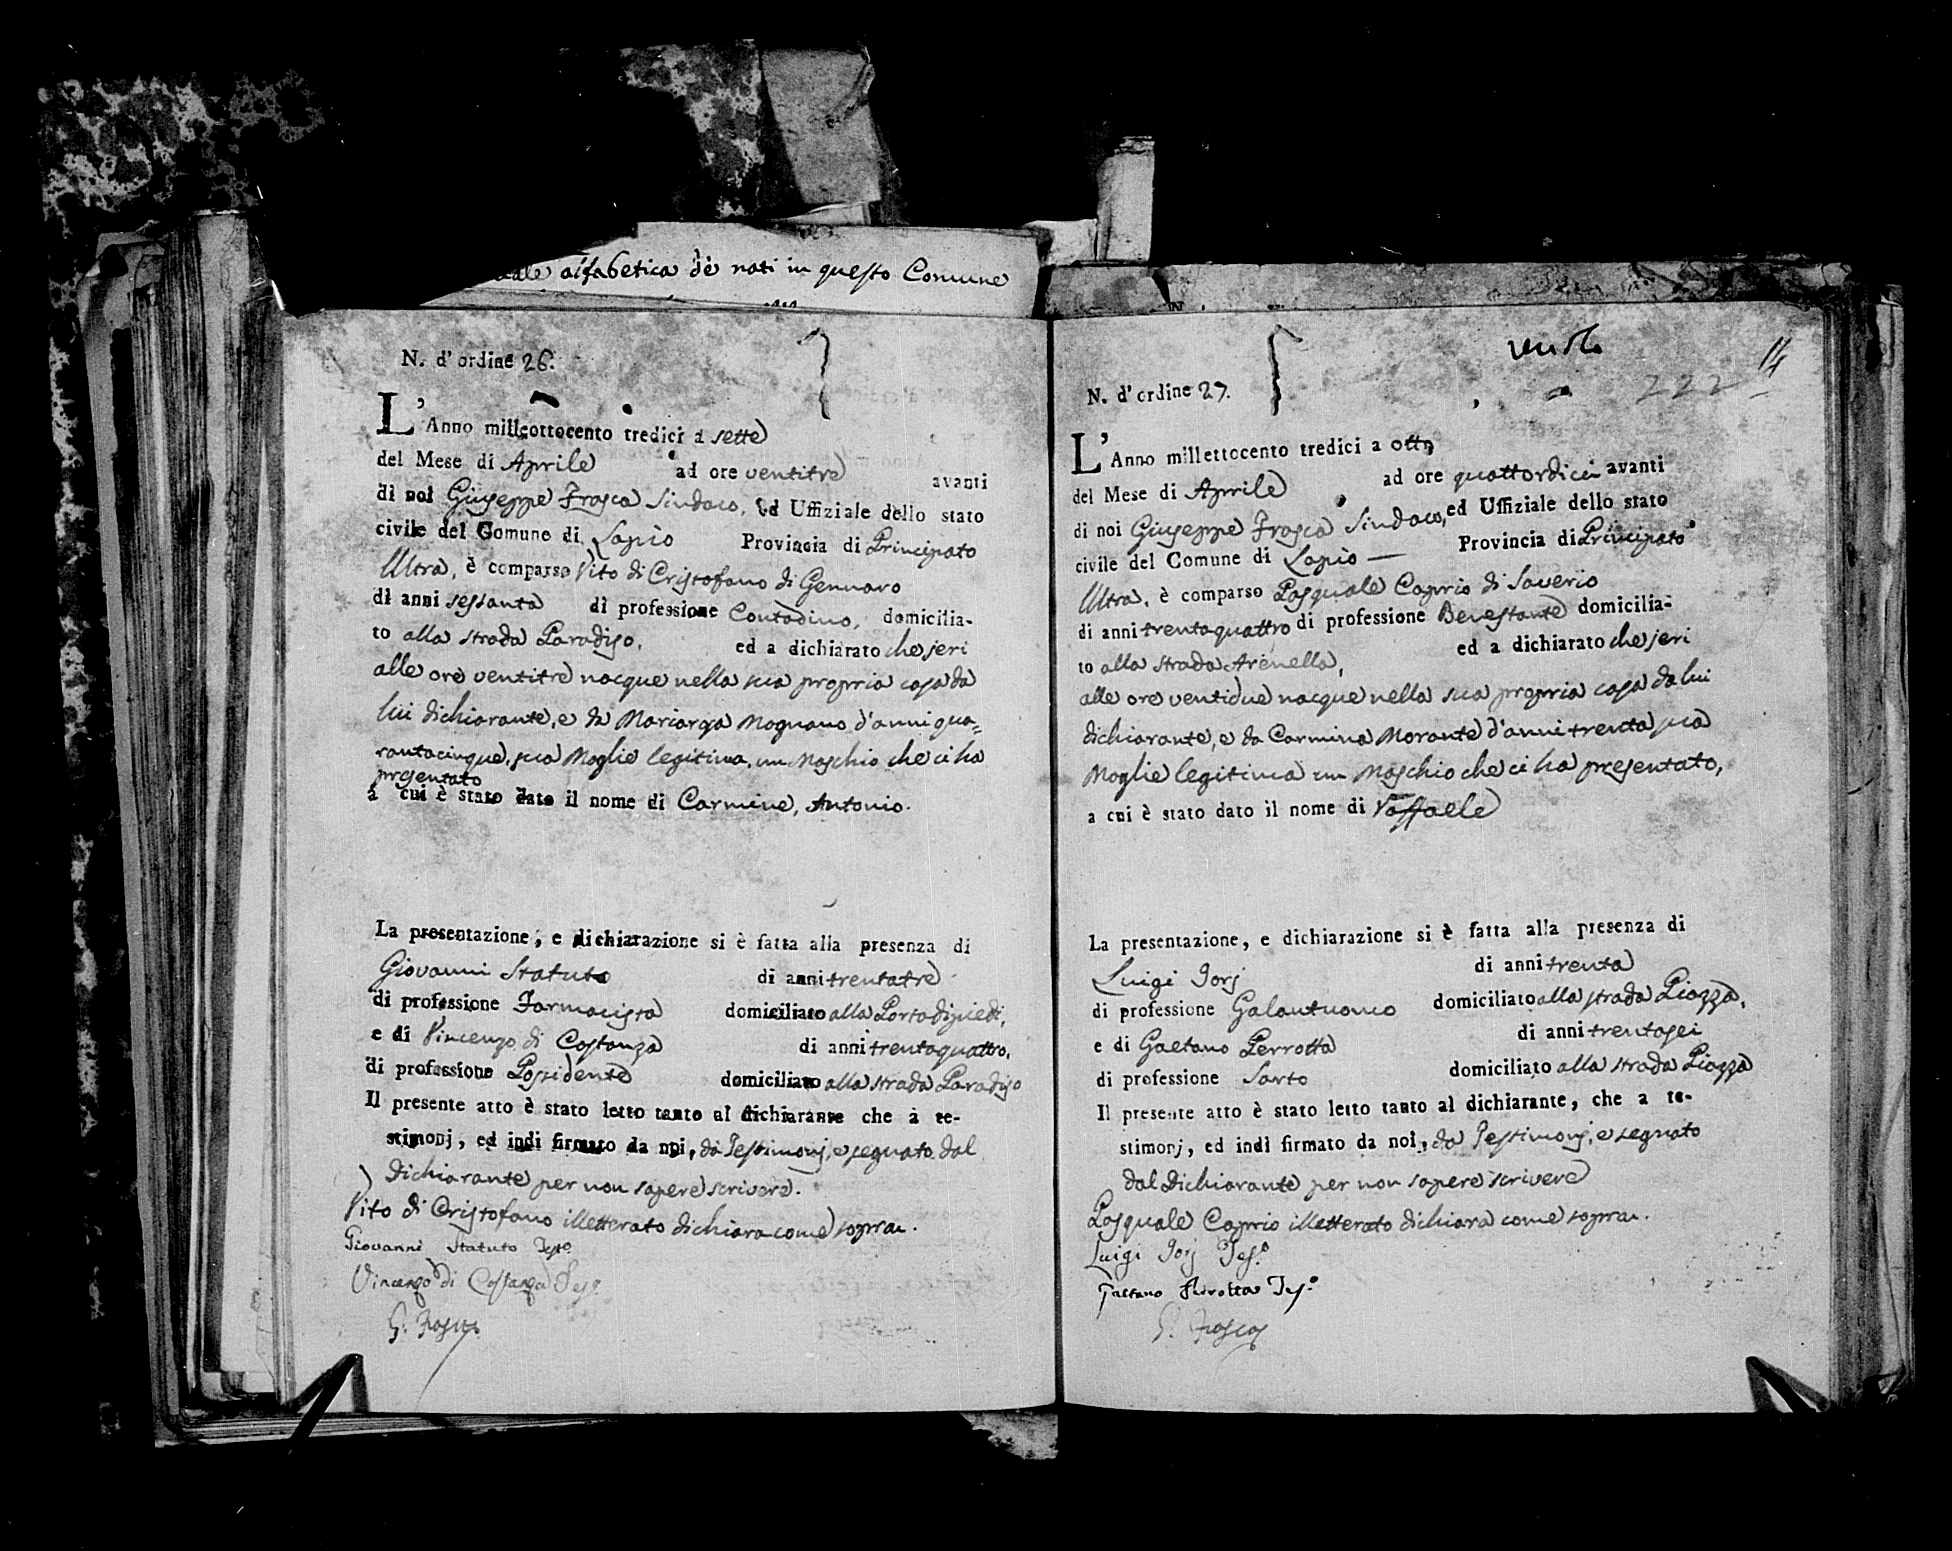 alfabetica de nati in questo Comune
N. d' ordine 26.
L'Anno milleottocento tredici a sette
del Mese di Aprile ad ore ventitre avanti
di noi Giuseppe Frasca Sindaco, ed Uffiziale dello stato
civile del Comune di Lapio Provincia di Principato
Ultra, è comparso Vito di Cristofano di Gennaro
di anni sessanta di professione Contadino, domicilia-
to alla strada Paradiso, ed a dichiarato che jeri
alle ore ventitre nacque nella sua propria casa da
lui dichiarante, e da Mariangela Magnano d'anni qua=
rantacinque, sua Moglie legitima, un Maschio che ci ha
presentato
a cui è stato dato il nome di Carmine, Antonio.
La presentazione, e dichiarazione si è fatta alla presenza di
Giovanni Statuto di anni trentatre
di professione Farmacista domiciliato alla Portadipiedi,
e di Vincenzo di Costanza di anni trentaquattro,
di professione Possidente domiciliato alla strada Paradiso
Il presente atto è stato letto tanto al dichiarante che a te-
stimonj, ed indi firmato da noi, da Testimonj, e segnato dal
Dichiarante per non sapere scrivere.
Vito di Cristofano illetterato dichiara come sopra.
Giovanni Statuto Tesº
Vincenzo di Costanza Tesº
G. Frasca
14
222
N. d' ordine 27.
L'Anno millettocento tredici a otto
del Mese di Aprile ad ore quattordici avanti
di noi Giuseppe Frasca Sindaco, ed Uffiziale dello stato
civile del Comune di Lapio — Provincia di Principato
Ultra, è comparso Pasquale Caprio di Saverio
di anni trentaquattro di professione Benestante domicilia-
to alla strada Arenella, ed a dichiarato che jeri
alle ore ventidue nacque nella sua propria casa da lui
dichiarante, e da Carmina Morante d'anni trenta sua
Moglie legitima un Maschio che ci ha presentato,
a cui è stato dato il nome di Raffaele
La presentazione, e dichiarazione si è fatta alla presenza di
Luigi Jorj di anni trenta
di professione Galantuomo domiciliato alla strada Piazza,
e di Gaetano Perrotta di anni trentasei
di professione Sarto domiciliato alla strada Piazza
Il presente atto è stato letto tanto al dichiarante, che a te-
stimonj, ed indi firmato da noi, da Testimonj, e segnato
dal Dichiarante per non sapere scrivere
Pasquale Caprio illetterato dichiara come sopra.
Luigi Jorj Tes.º
Gaetano Perotta Tes.º
G. Frasca